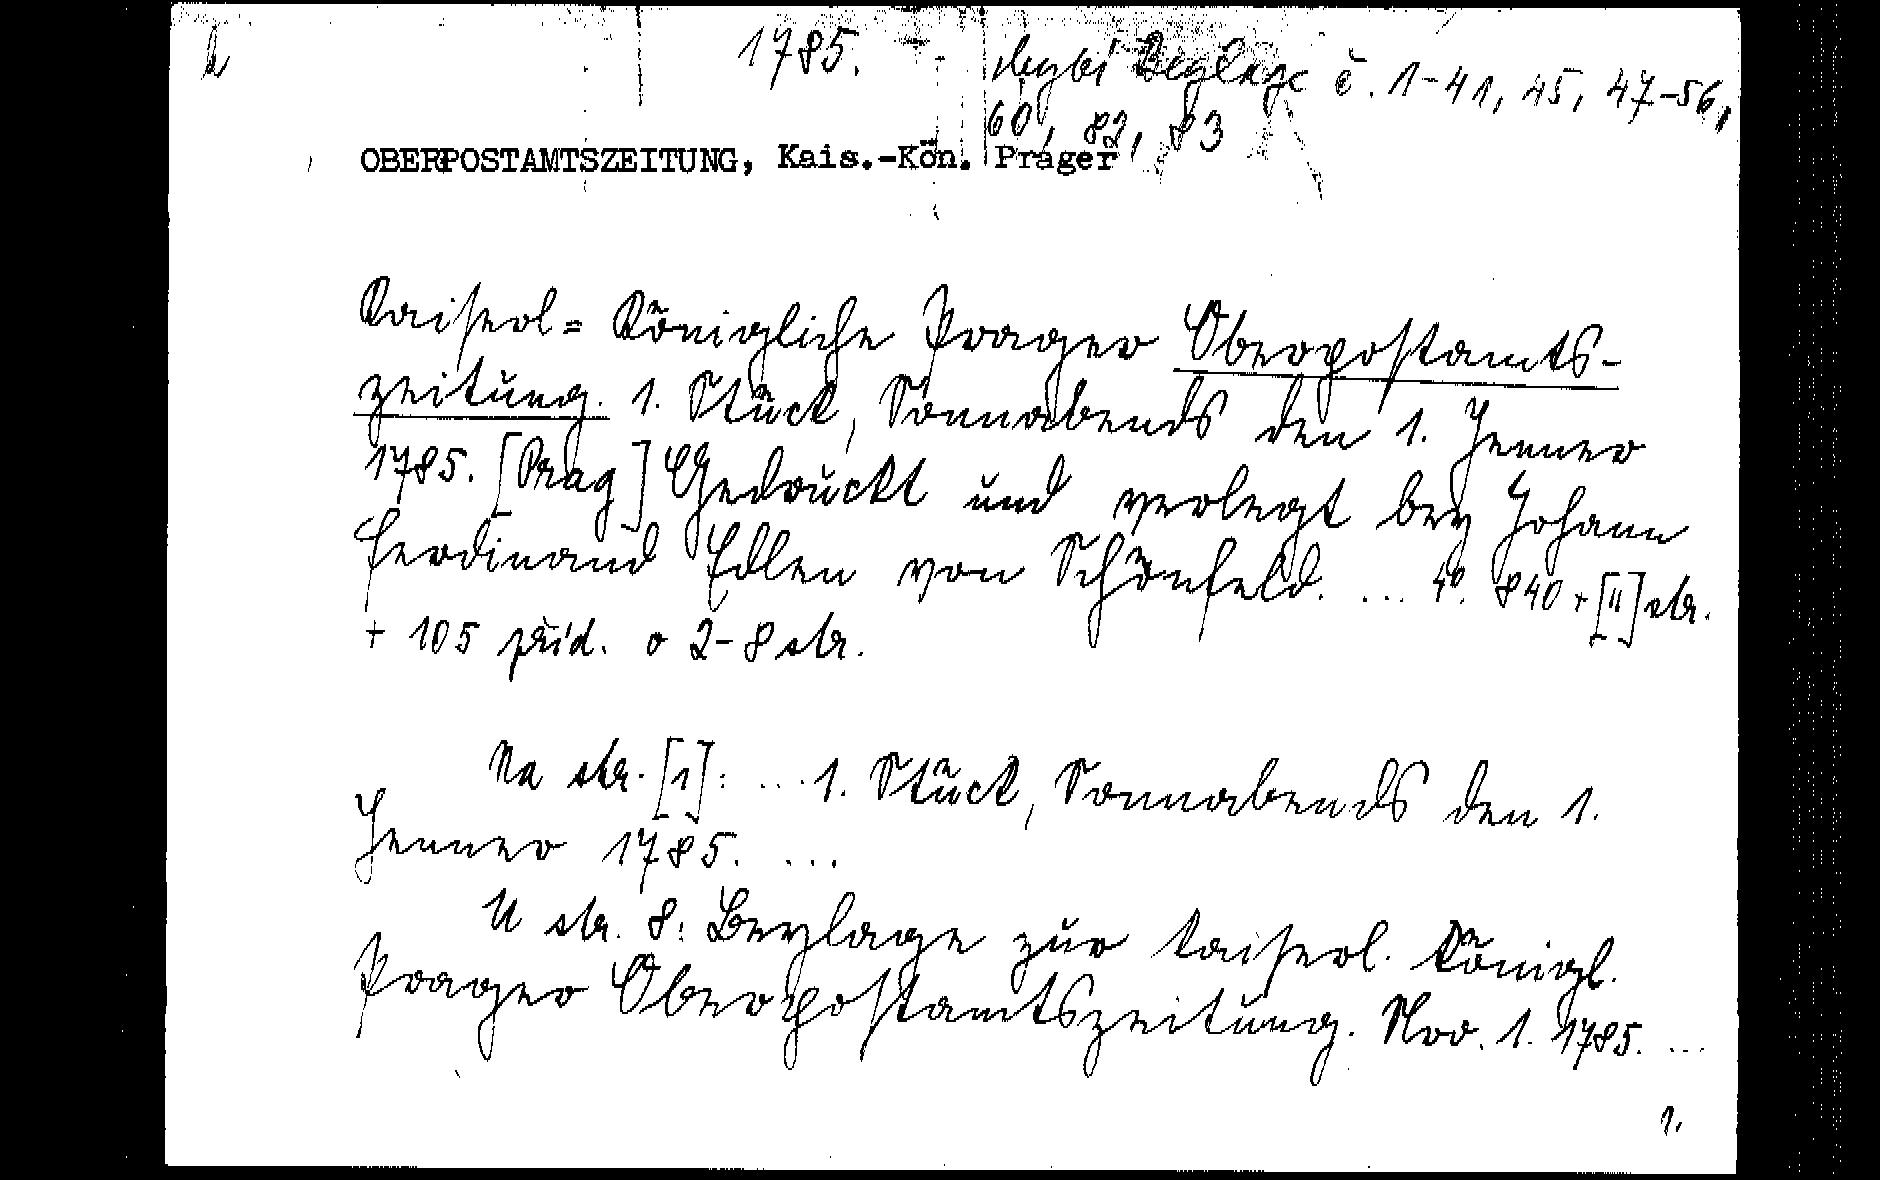 1785.
chybí Beylage č. 1-41, 45, 47-56,
60, 82, 83
OBERPOSTAMTSZEITUNG, Kais.-Kön. Prager
Kaiserl= Königliche Prager Oberpostamts-
zeitung. 1. Stück, Sonnabends den 1. Jenner
1785. [Prag] Gedruckt und verlegt bey Johann
Ferdinand Edlen von Schönfeld. ... 4°. 840 + [II] str.
+ 105 příd. o 2-8 str.
Na str. [1]: ... 1. Stück, Sonnabends den 1.
Jenner 1785. ...
U str. 8: Beylage zur kaiserl. Königl.
Prager Oberpostamtszeitung. Nro. 1. 1785. ...
1.